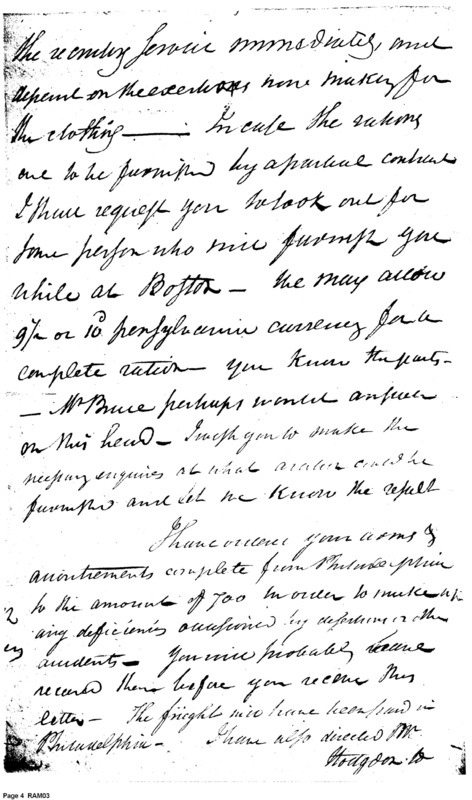 the recruiting service immediately, and
depend on the exertions now making for
the clothing —— In case the rations
are to be furnished by a partial contract
I shall request you to look out for
some person who will furnish you
while at Boston — We may allow
9/ or 10d pensylvania currency for a
complete ration — you know the parts —
— Mr Bruce perhaps would answer
on this head — I wish you to make the
necessary enquiries at what a ration could be
furnished and let me know the result
I have ordered your arms &
accoutrements complete from Philadelphia
to the amount of 700 in order to make up
any deficiencies occasioned by desertions or other
accidents — You will probably have
received them before you receive this
letter — The freight will have been paid in
Philadelphia — I have also directed Mr
Hodgdon to
Page 4 RAM03